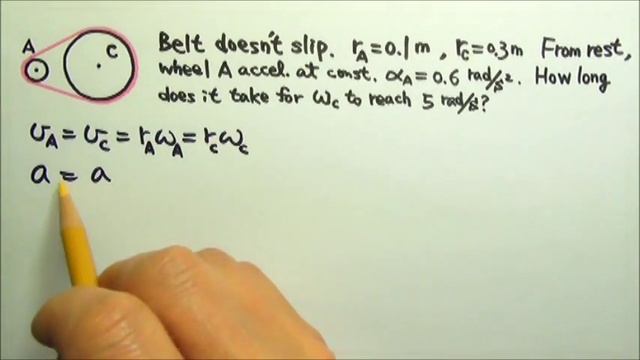 A
C
Belt doesn't slip. r_A = 0.1 m, r_C = 0.3 m From rest,
wheel A accel. at const. α_A = 0.6 rad/s². How long
does it take for ω_C to reach 5 rad/s?
v_A = v_C = r_A ω_A = r_C ω_C
a = a